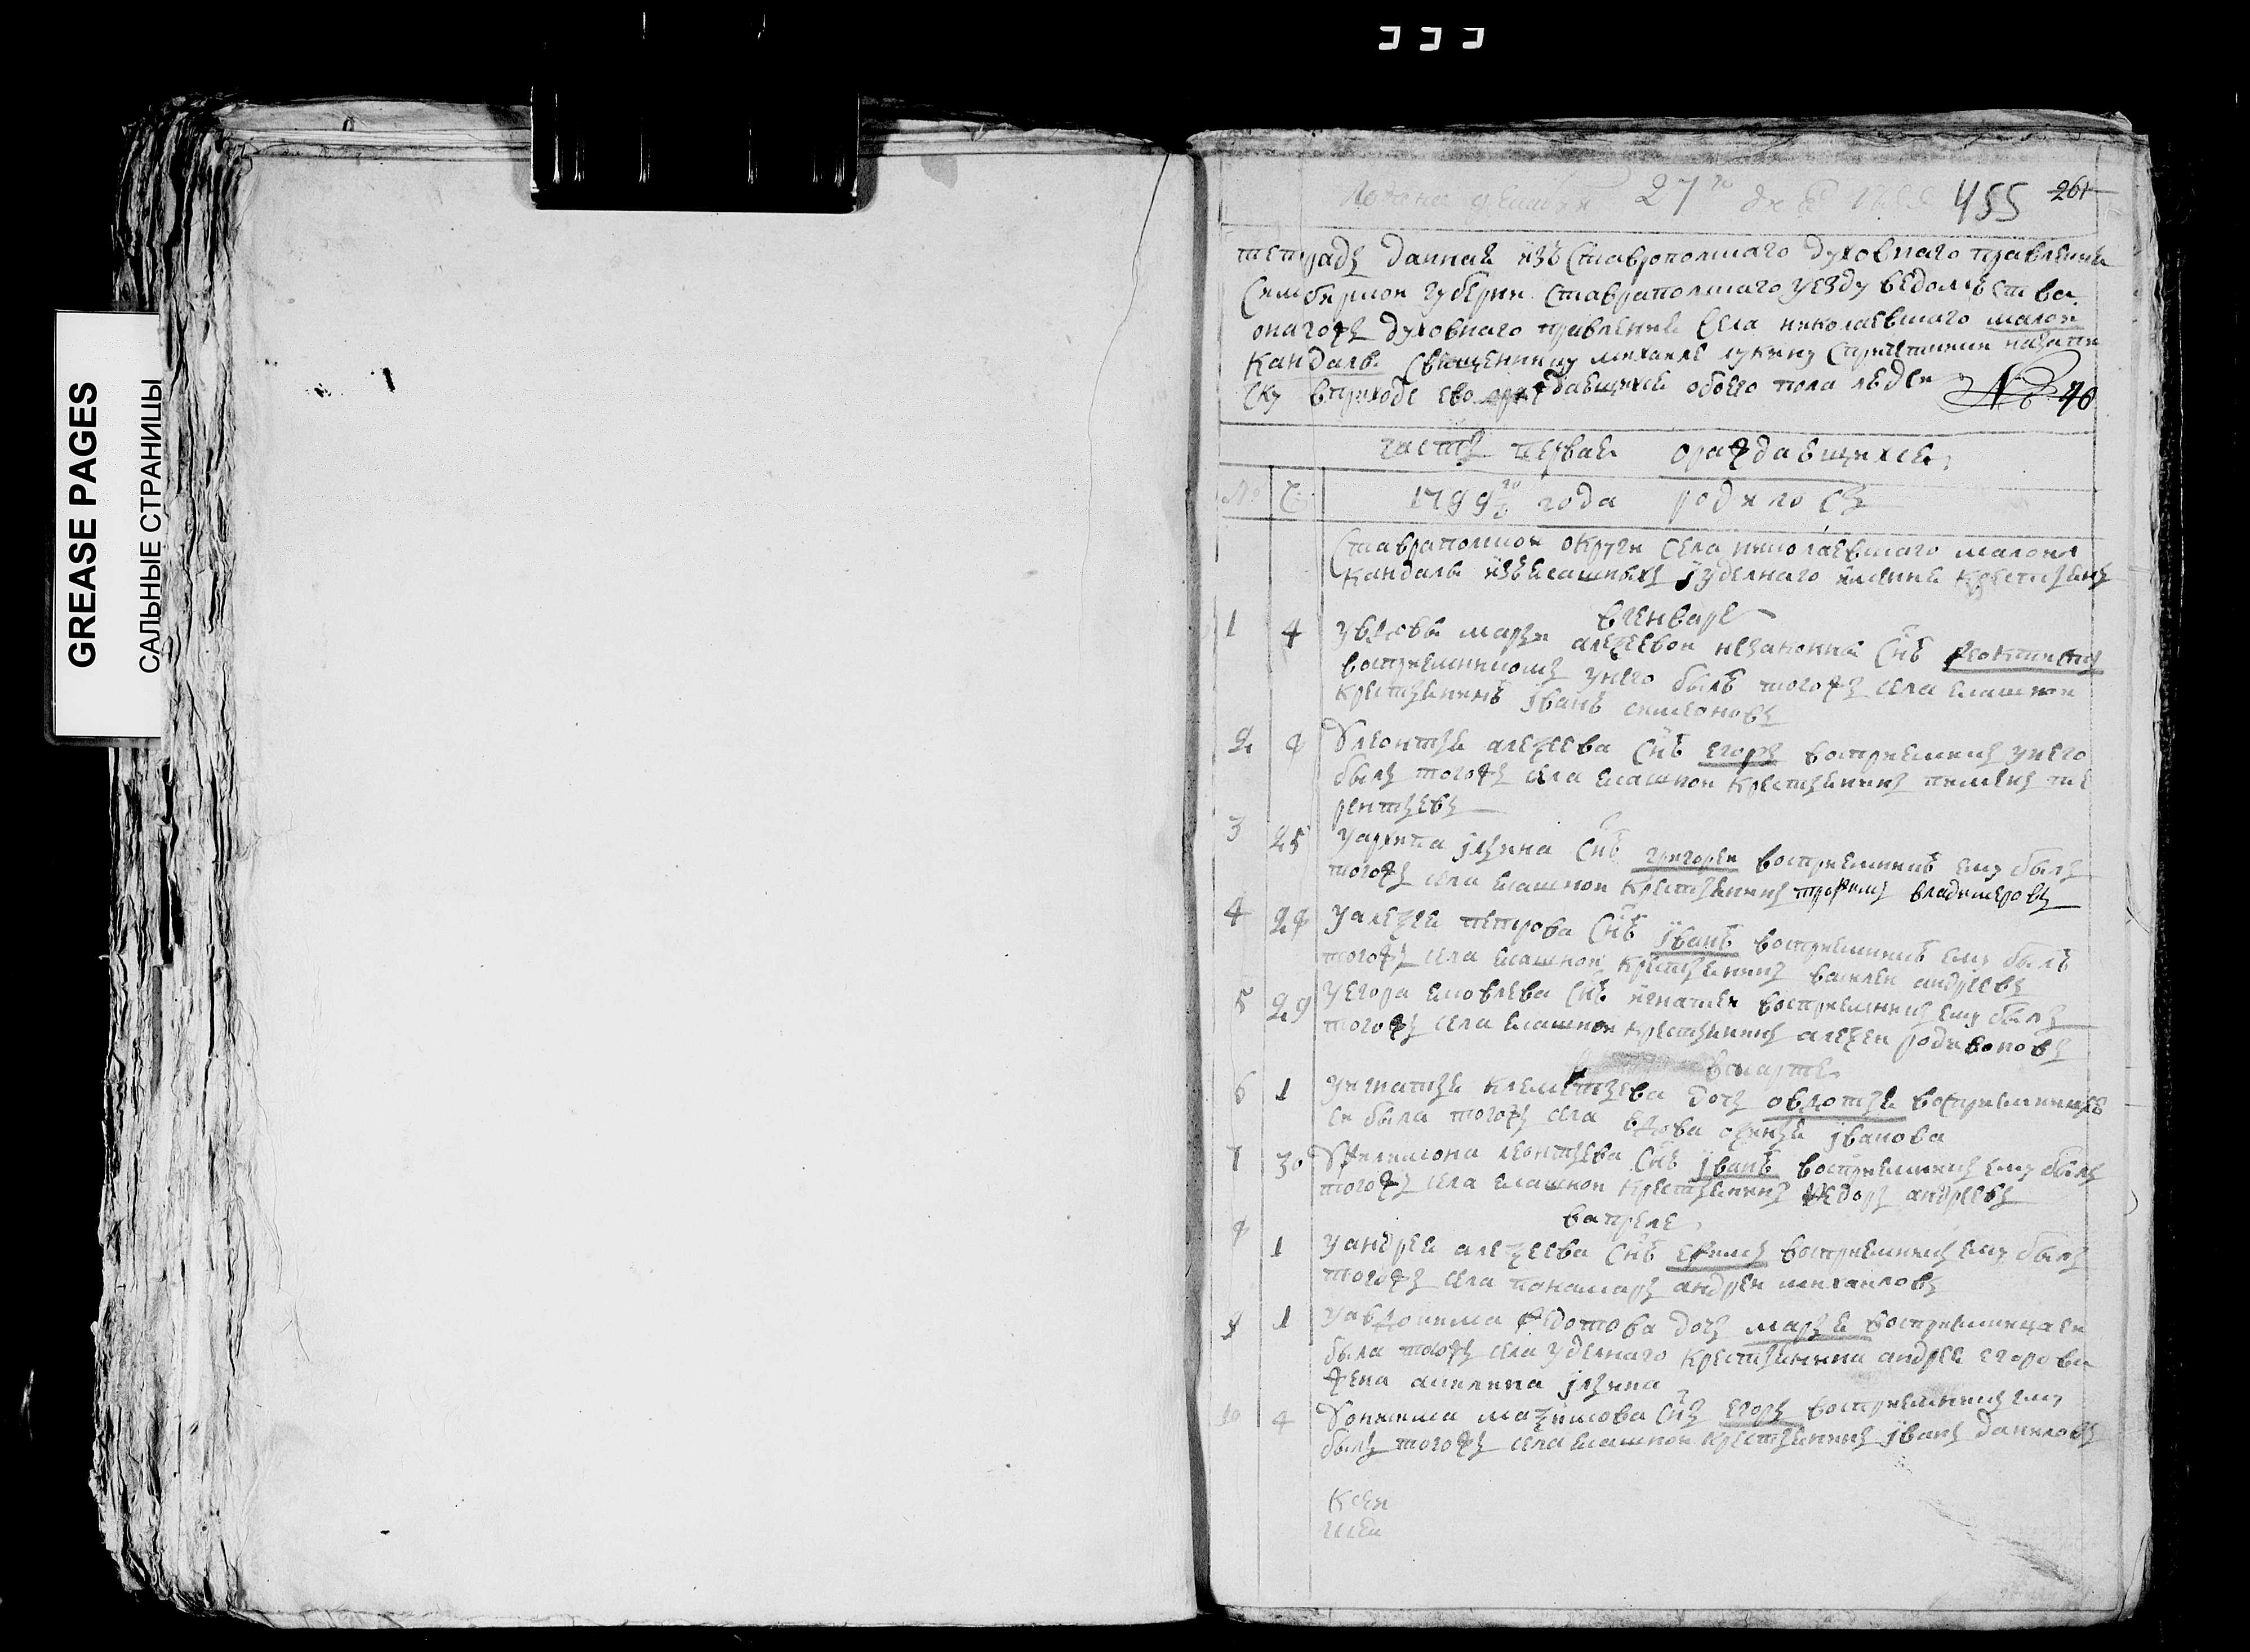 GREASE PAGES
САЛЬНЫЕ СТРАНИЦЫ
27 455 261
тетрадь данная изъ Ставропольшаго духовнаго правления
Симбирской губерни Ставрапольшаго уезду ведомъства
онагожъ духовнаго правления села николаевшаго малои
кандалы священнику михаиле лукину спричтники назапи
ску вприходе ево рождавшихся обоего пола людеи № 40
часть первая ораждавшихся
№ Ч 1799 го года родилось
Ставрапольшои округи села николаевшаго малои
кандалы изъ ясашныхъ удельнаго имения крестьянъ
вгенваре
1 4 увдовы марьи алеѯеевои незаконнаи снъ феоктистъ
восприемникомъ унего былъ тогожъ села ясашнои
крестьянинъ іванъ семеоновъ
2 8 Улеонтья алеѯеева снъ егоръ восприемникъ унего
былъ тогожъ села ясашнои крестьянинъ пимянъ те
рентьевъ
3 25 Уархипа ильина снъ григореи восприемникъ ему былъ
тогожъ села ясашнои крестьянинъ трофимъ владимеровъ
4 28 Уалеѯея петрова снъ іванъ восприемникъ ему былъ
тогожъ села ясашнои крестьянинъ василеи андреевъ
5 29 Уегора яковлева снъ игнатеи восприемникъ ему былъ
тогожъ села ясашнои крестьянинъ алеѯеи родивоновъ
вмарте
6 1 Уигнатья клементьева дочь авдотья восприемница
еи была тогожъ села вдова оѯинья іванова
7 30 Уфилимона леонтьева снъ іванъ восприемникъ ему былъ
тогожъ села ясашнои крестьянинъ федоръ андреевъ
вапреле
8 1 Уандрея алеѯеева снъ ефимъ восприемникъ ему былъ
тогожъ села понамарь андреи михаиловъ
9 1 Уавдокима федотова дочь марья восприемница еи
была тогожъ села удельнаго крестьянина андрея егорова
жена акилина ильина
10 4 Уонисима маѯимова снъ егоръ восприемникъ ему
былъ тогожъ села ясашнои крестьянинъ іванъ даниловъ
Ксеи